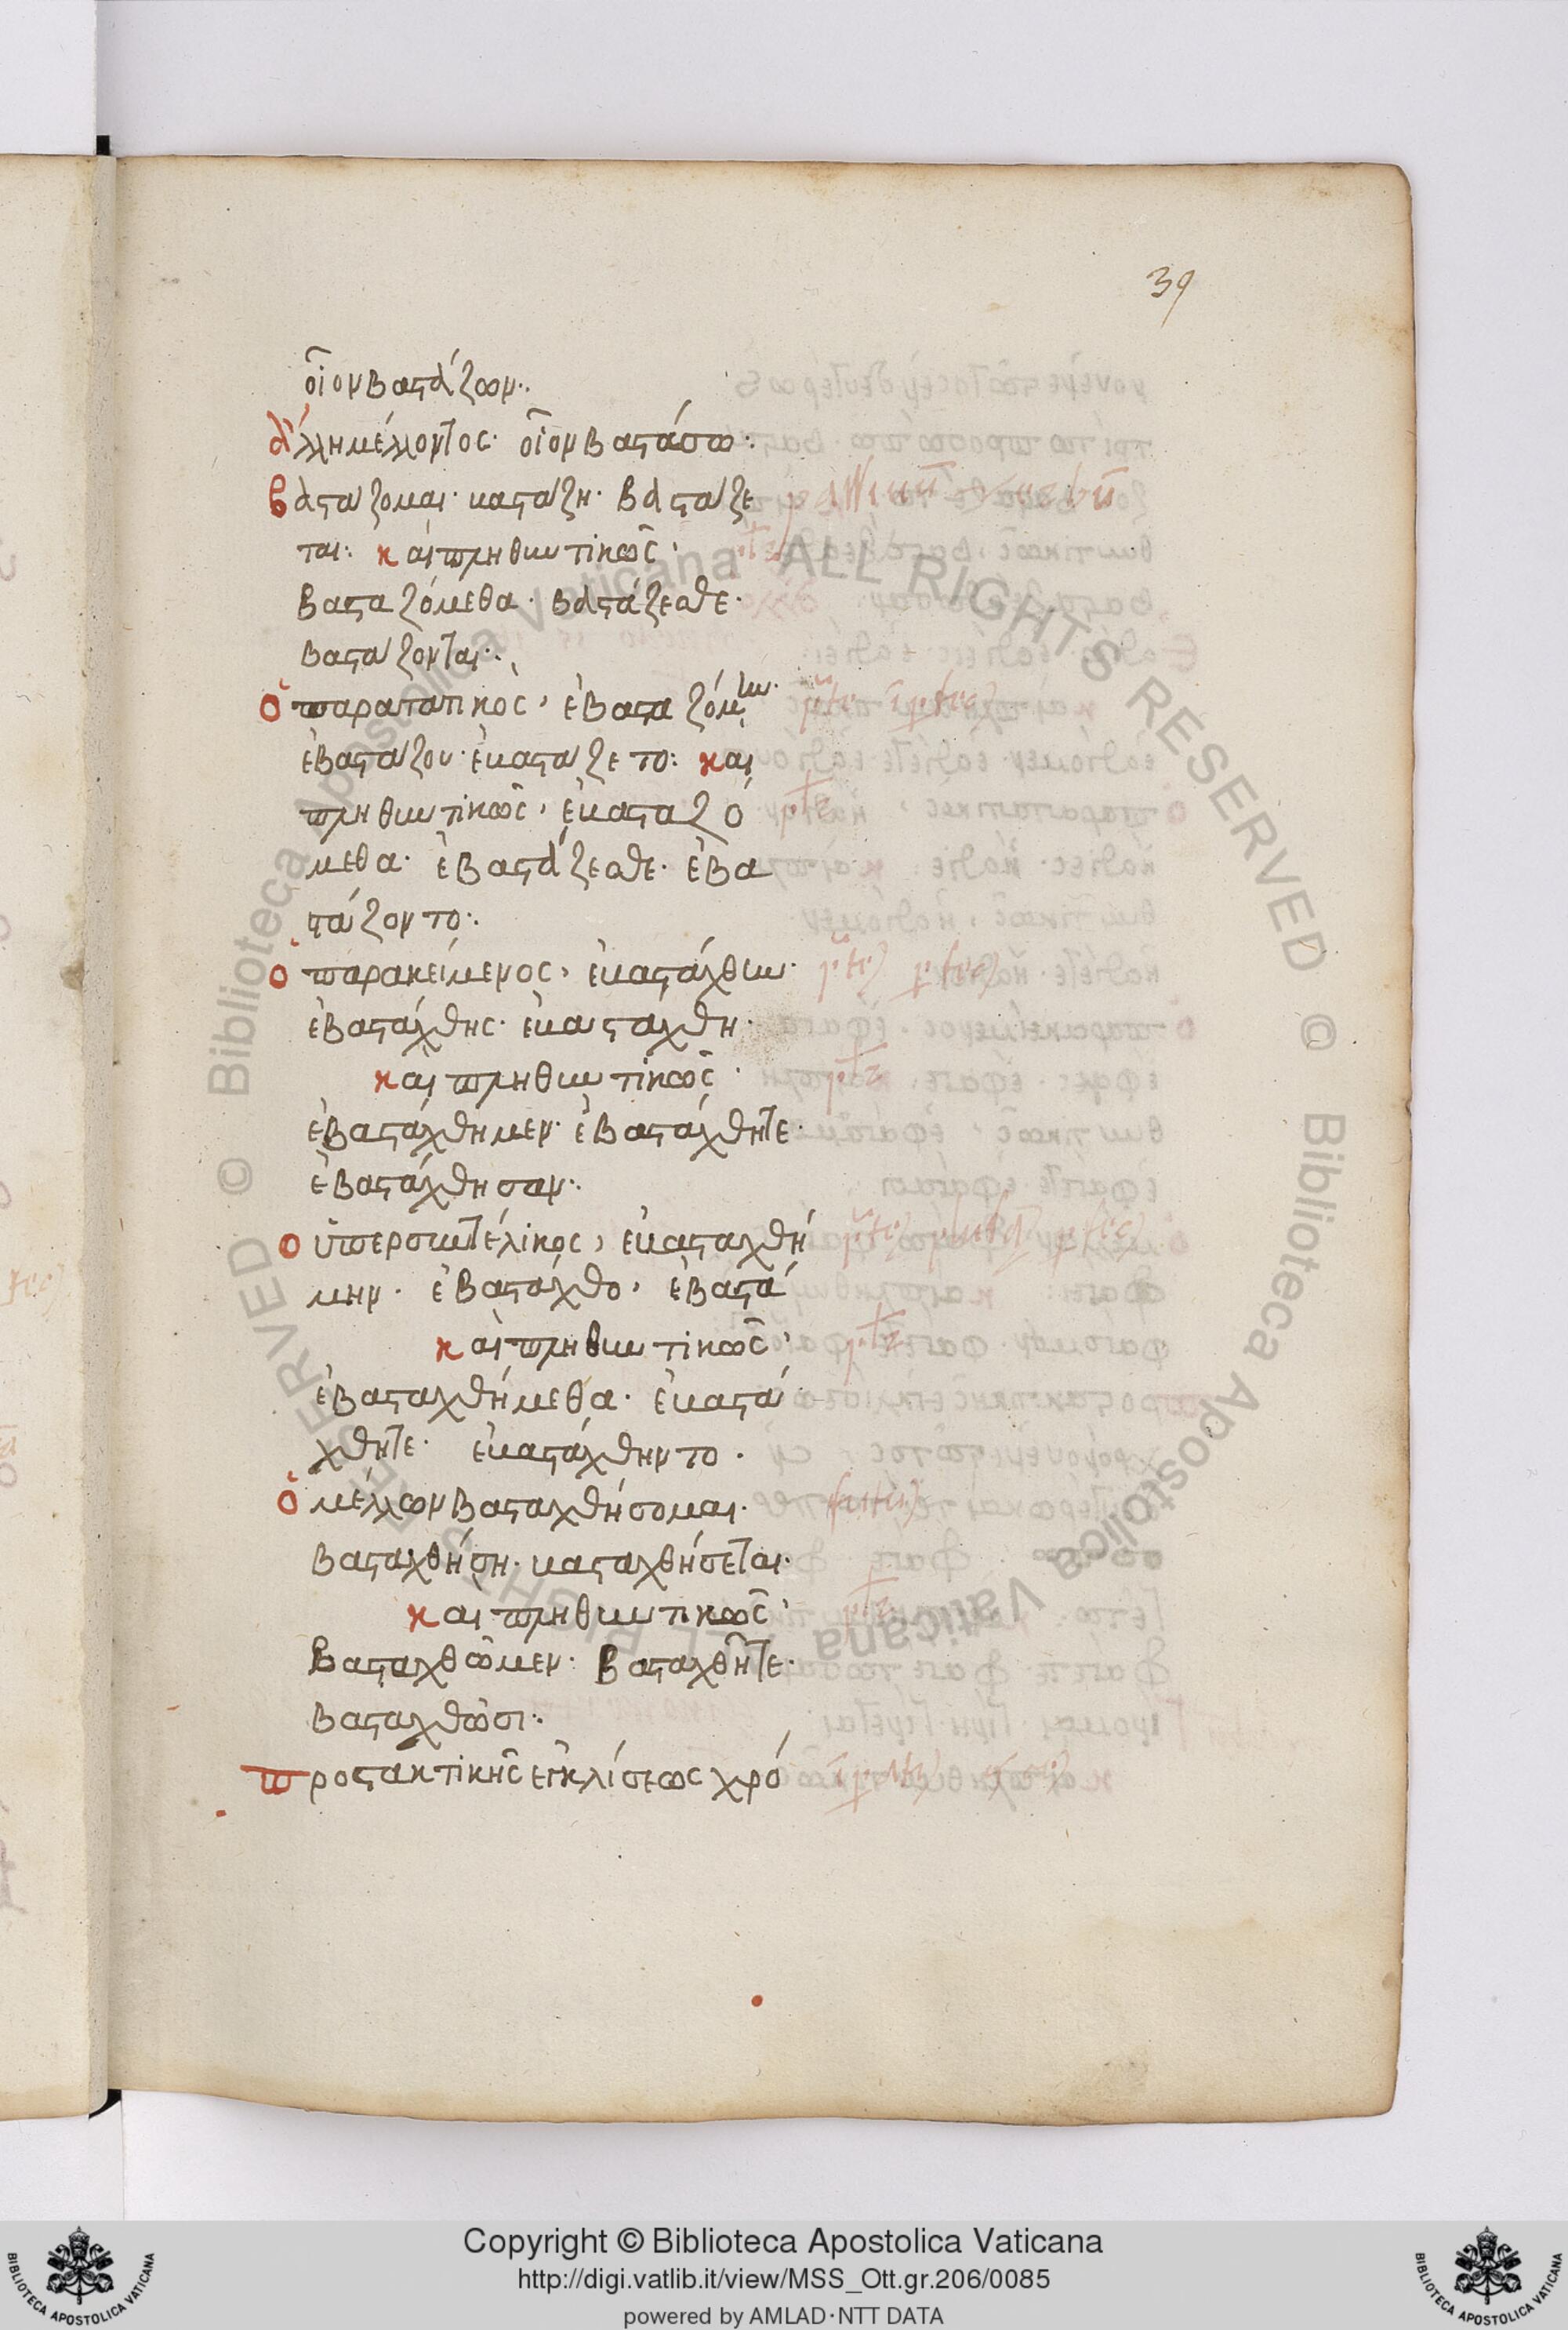 39
οἷον βαστάζων·.
ἄλλη μέλλοντος· οἷον βαστάσω:
βαστάζομαι· βαστάζη· βαστάζε
ται: καὶ πληθυντικῶς·
βασταζόμεθα· βαστάζεσθε·
βαστάζονται·.
Ὁ παρατατικὸς, ἐβασταζόμην·
ἐβαστάζου· ἐβαστάζετο: καὶ
πληθυντικῶς, ἐβασταζό
μεθα· ἐβαστάζεσθε· ἐβα
στάζοντο·.
Ὁ παρακείμενος, ἐβαστάχθην·
ἐβαστάχθης· ἐβαστάχθη·
καὶ πληθυντικῶς·
ἐβαστάχθημεν· ἐβαστάχθητε·
ἐβαστάχθησαν·.
Ὁ ὑπερσυντέλικος, ἐβασταχθή
μην· ἐβαστάχθο, ἐβαστά
καὶ πληθυντικῶς,
ἐβασταχθήμεθα· ἐβαστά
χθητε· ἐβαστάχθηντο·
Ὁ μέλλων βασταχθήσομαι·
βασταχθήση· βασταχθήσεται·
καὶ πληθυντικῶς,
βασταχθῶμεν· βασταχθῆτε·
βασταχθῶσι·.
προστακτικῆς ἐγκλίσεως χρό
Copyright © Biblioteca Apostolica Vaticana
http://digi.vatlib.it/view/MSS_Ott.gr.206/0085
powered by AMLAD·NTT DATA
© Biblioteca Apostolica Vaticana ALL RIGHTS RESERVED © Biblioteca Apostolica Vaticana ALL RIGHTS RESERVED
BIBLIOTECA APOSTOLICA VATICANA
BIBLIOTECA APOSTOLICA VATICANA